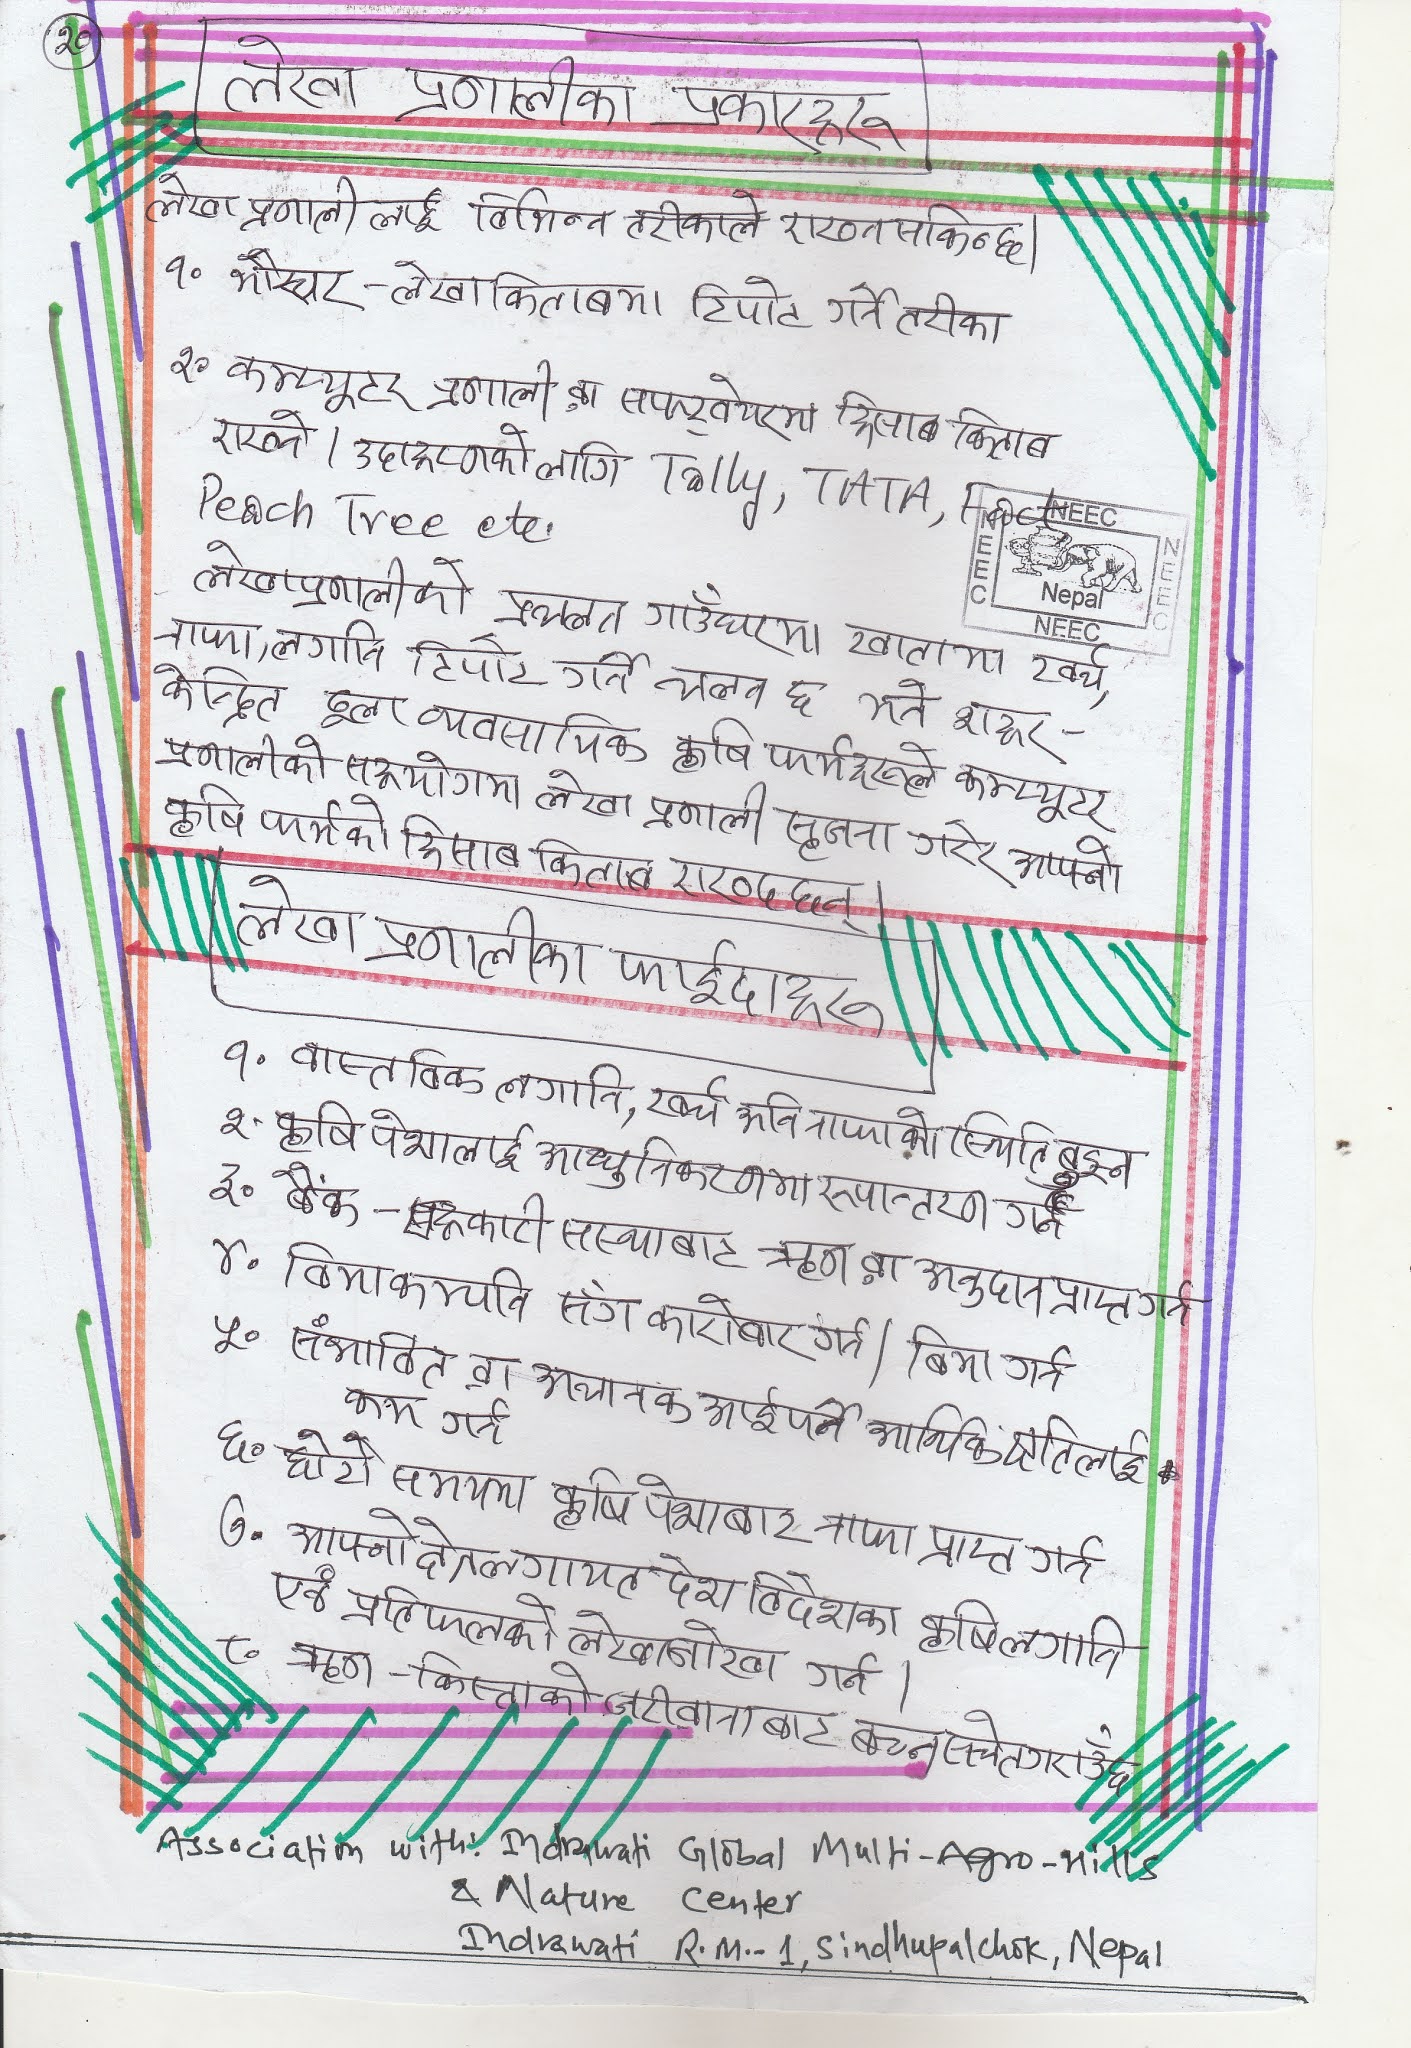 २०
लेखा प्रणालीका प्रकारहरू
लेखा प्रणाली लाई विभिन्न तरीकाले राख्न सकिन्छ।
१. भौचर - लेखा किताबमा टिपोट गर्ने तरीका
२. कम्प्यूटर प्रणाली वा सफ्ट्वेयरमा हिसाब किताब
राख्ने। उदाहरणको लागि Tally, TATA, Fact
Peach Tree etc.
NEEC
NEEC
NEEC
Nepal
NEEC
लेखाप्रणालीको प्रचलन गाउँघरमा खातामा खर्च,
नाफा, लगानि टिपोट गर्ने चलन छ भने शहर-
केन्द्रित ठूला व्यवसायिक कृषि फर्महरूले कम्प्यूटर
प्रणालीको सहयोगमा लेखा प्रणाली सृजना गरेर आफ्नो
कृषि फर्मको हिसाब किताब राख्दछन्।
लेखा प्रणालीका फाईदाहरू
१. वास्तविक लगानि, खर्च अनि नाफाको स्थिति बुझ्न
२. कृषि पेशालाई आधुनिकरणमा रूपान्तरण गर्न
३. बैंक - सहकारी संस्थाबाट ऋण वा अनुदान प्राप्त गर्न
४. बिमा कम्पनि संग कारोबार गर्न / बिमा गर्न
५. संभावित वा अचानक आईपर्ने आर्थिक क्षतिलाई
कम गर्न
६. छोटो समयमा कृषि पेशाबाट नाफा प्राप्त गर्न
७. आफ्नो क्षेत्र लगायत देश विदेशका कृषि लगानि
एवं प्रतिफलको लेखाजोखा गर्न।
८. ऋण - किस्ताको जरीवानाबाट बच्न सचेत गराउँछ
Association with: Indrawati Global Multi-Agro-Hills
& Nature Center
Indrawati R.M.-1, Sindhupalchok, Nepal